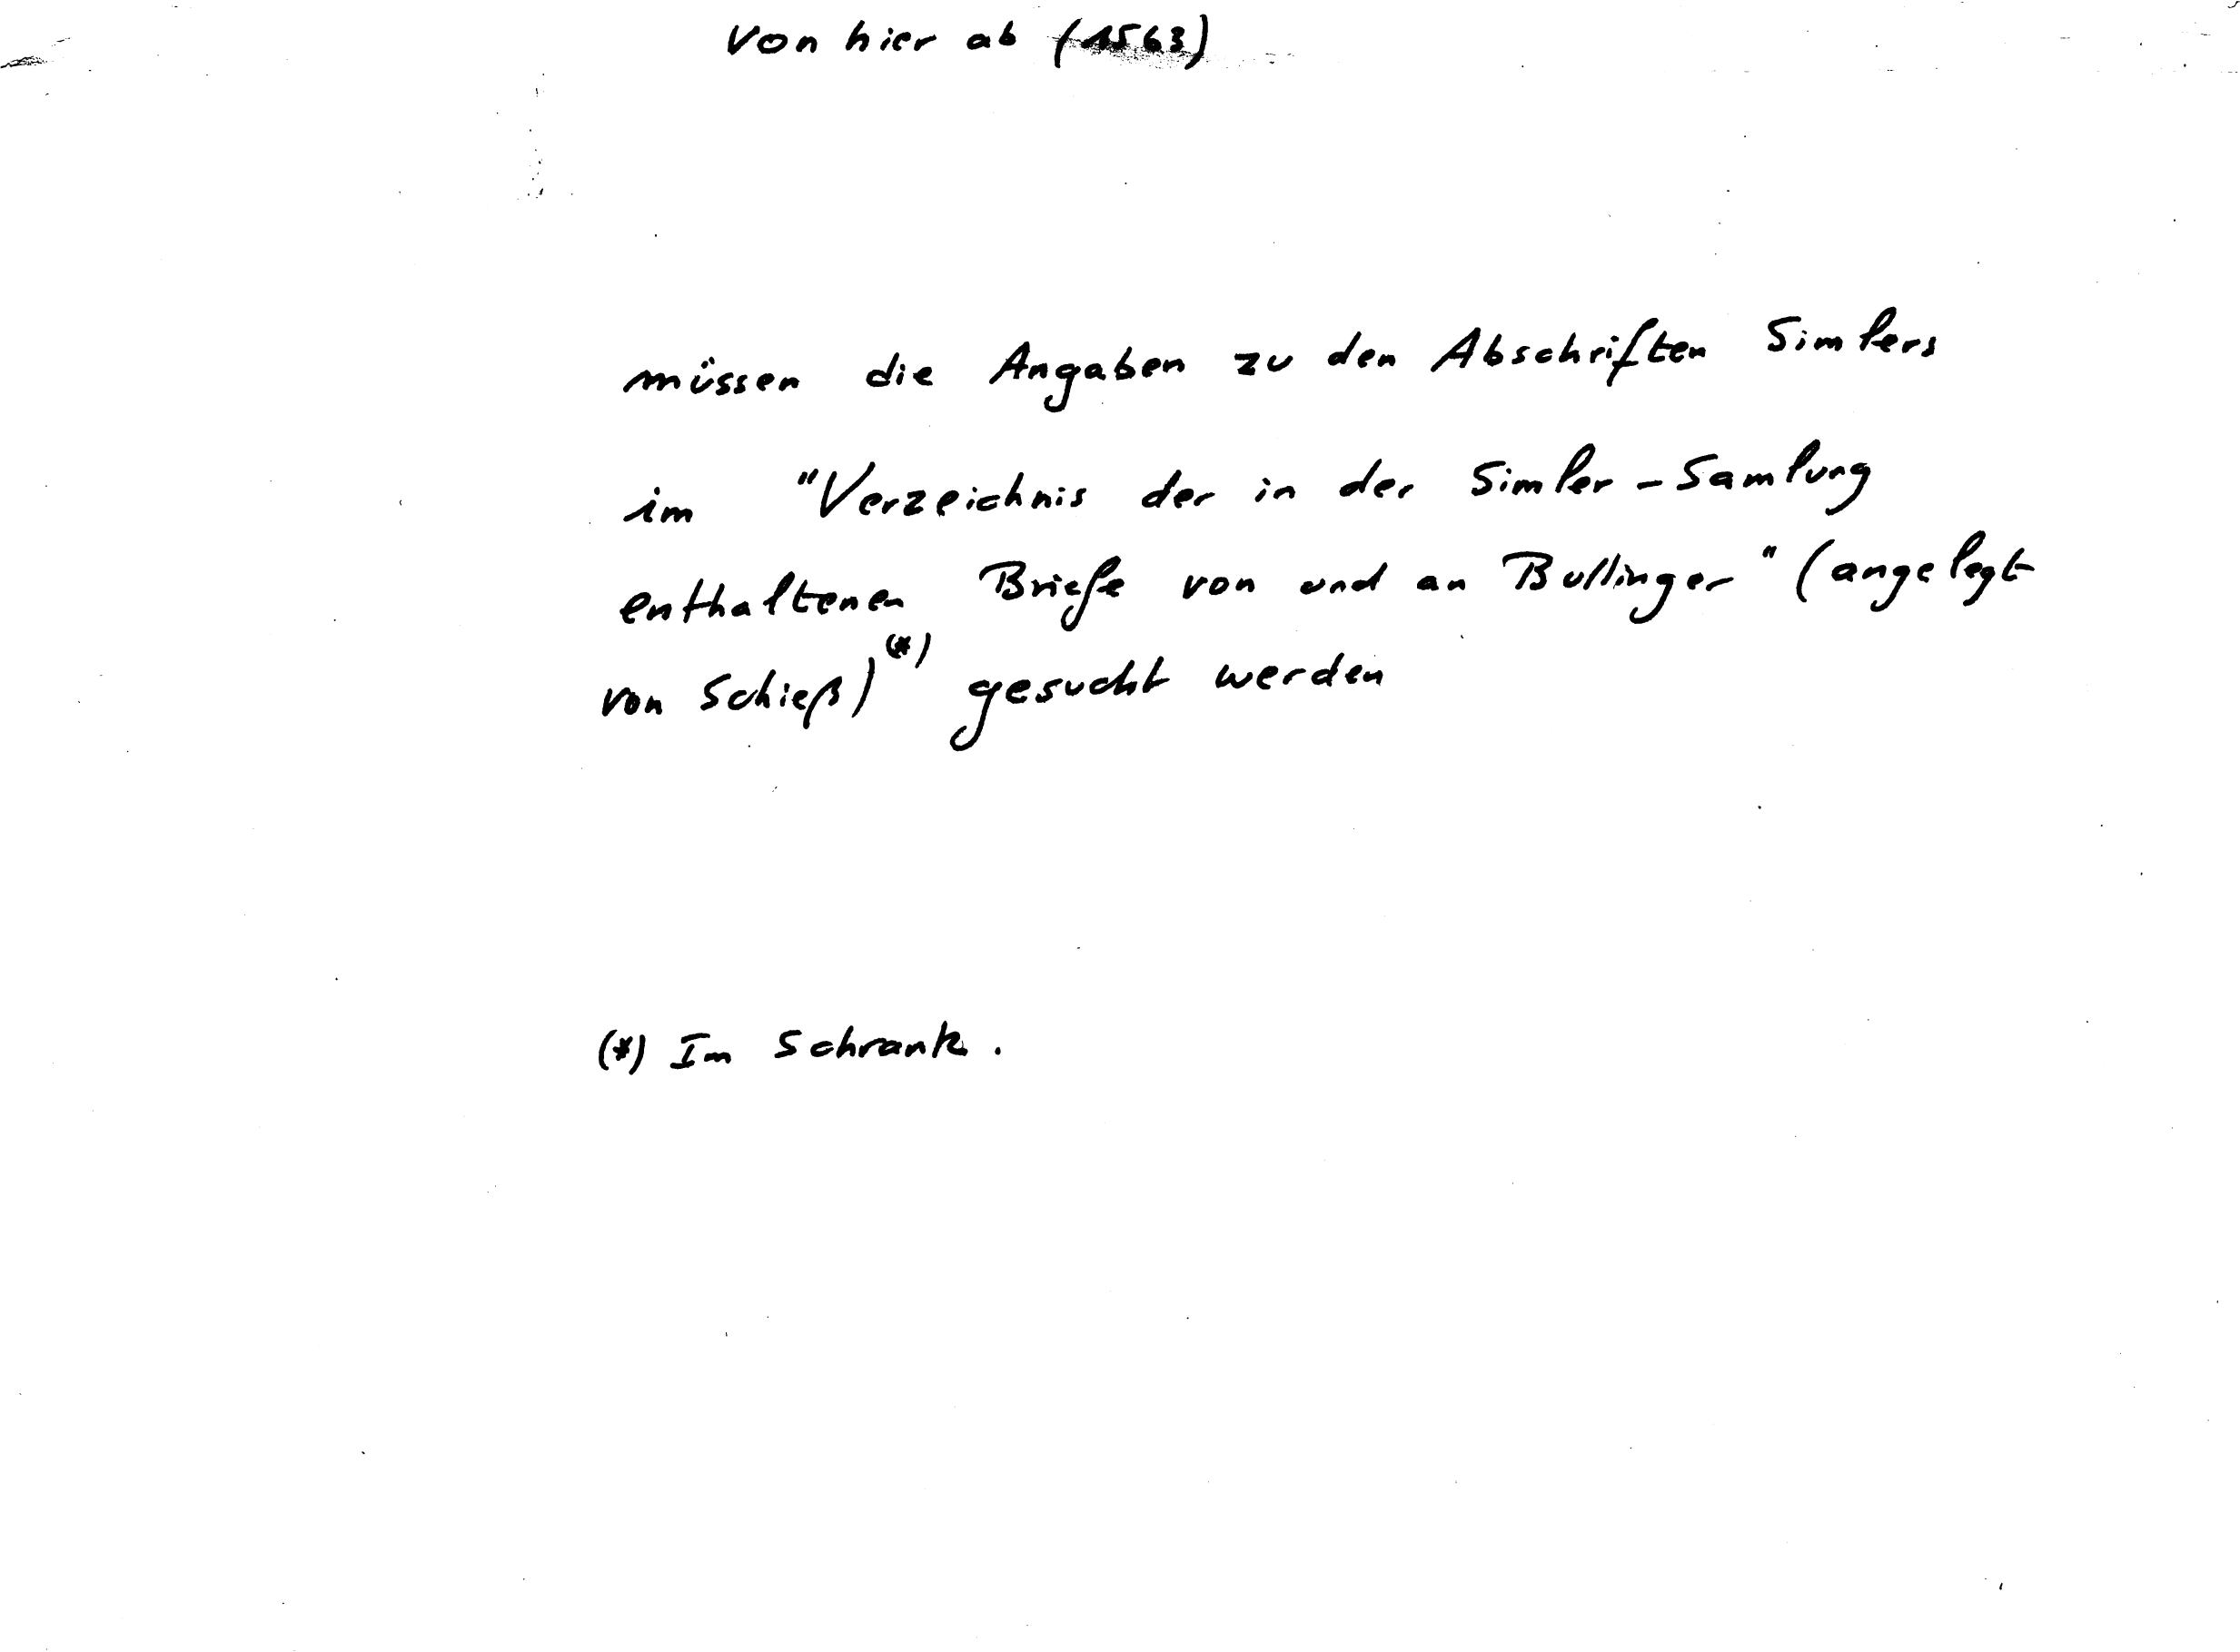 Von hier ab (1563)
müssen die Angaben zu den Abschriften Simlers
im "Verzeichnis der in der Simler-Samlung
enthaltenen Briefe von und an Bullinger" (angelegt
von Schieß)(*) gesucht werden
(*) Im Schrank.